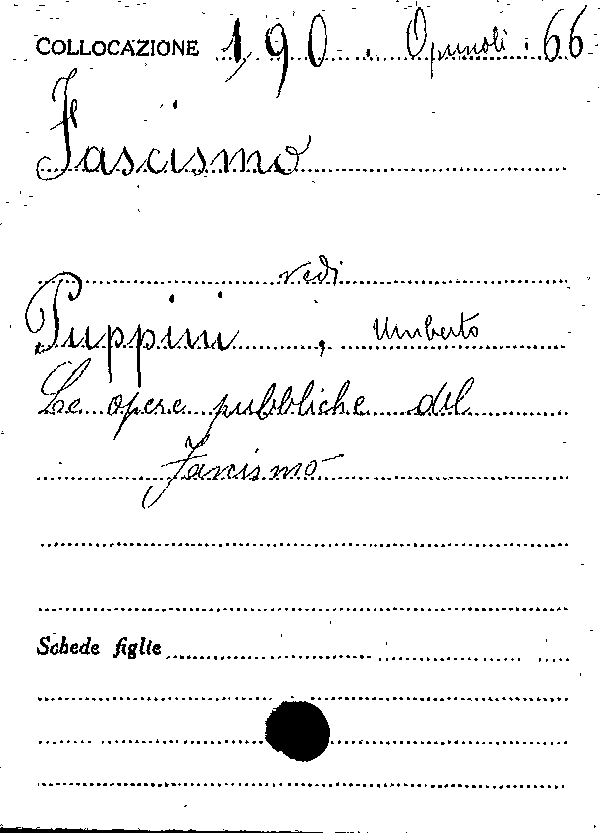 COLLOCAZIONE 1,90 . Opuscoli . 66
Fascismo
vedi
Puppini, Umberto
Le opere pubbliche del
Fascismo
Schede figlie